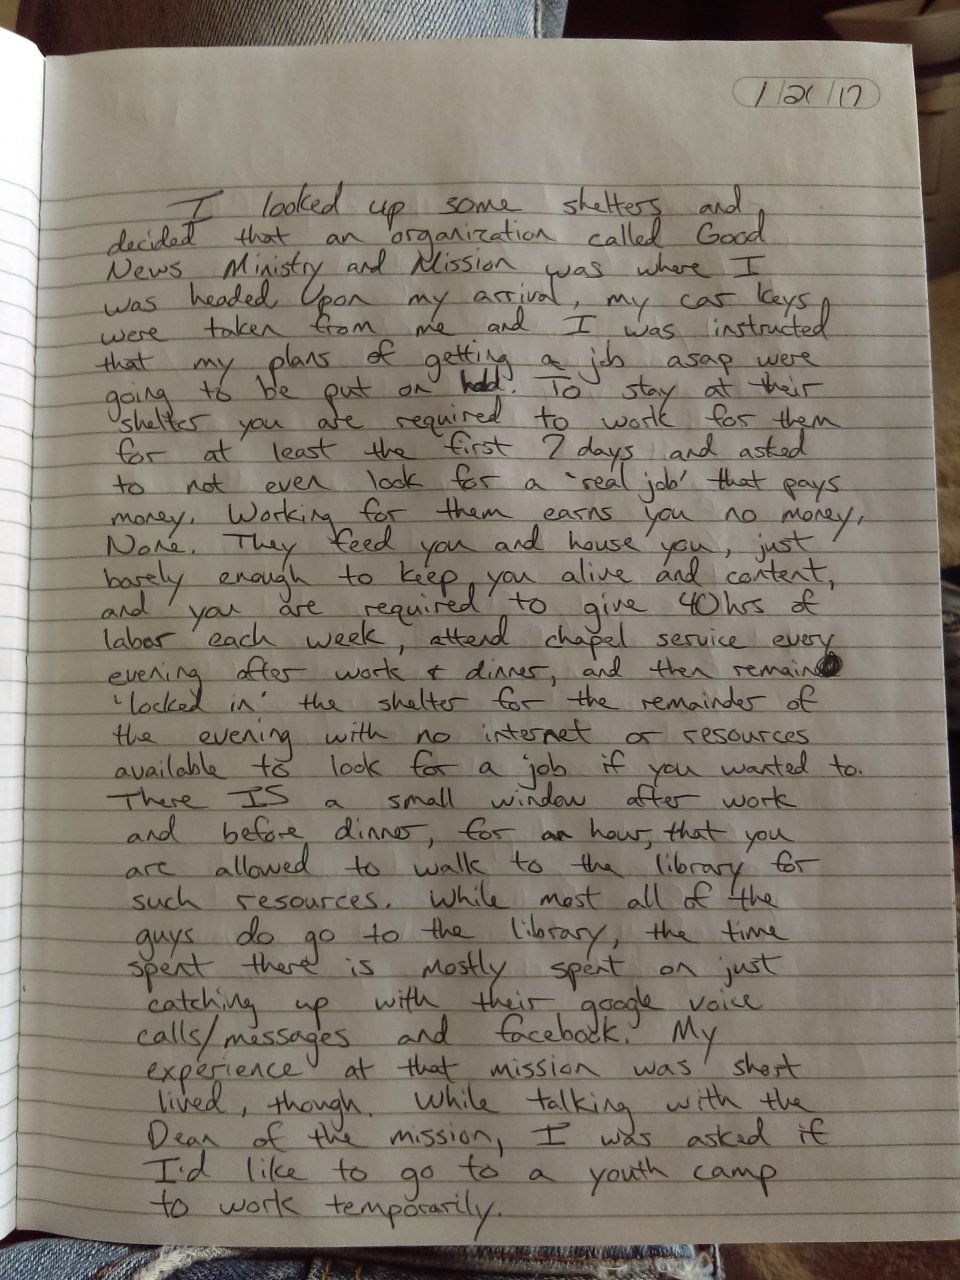 1/21/17
I looked up some shelters and
decided that an organization called Good
News Ministry and Mission was where I
was headed. Upon my arrival, my car keys
were taken from me and I was instructed
that my plans of getting a job asap were
going to be put on hold. To stay at their
shelter you are required to work for them
for at least the first 7 days and asked
to not even look for a 'real job' that pays
money. Working for them earns you no money.
None. They feed you and house you, just
barely enough to keep you alive and content,
and you are required to give 40hrs of
labor each week, attend chapel service every
evening after work & dinner, and then remain
'locked in' the shelter for the remainder of
the evening with no internet or resources
available to look for a job if you wanted to.
There IS a small window after work
and before dinner, for an hour, that you
are allowed to walk to the library for
such resources. While most all of the
guys do go to the library, the time
spent there is mostly spent on just
catching up with their google voice
calls/messages and facebook. My
experience at that mission was short
lived, though. While talking with the
Dean of the mission, I was asked if
I'd like to go to a youth camp
to work temporarily.